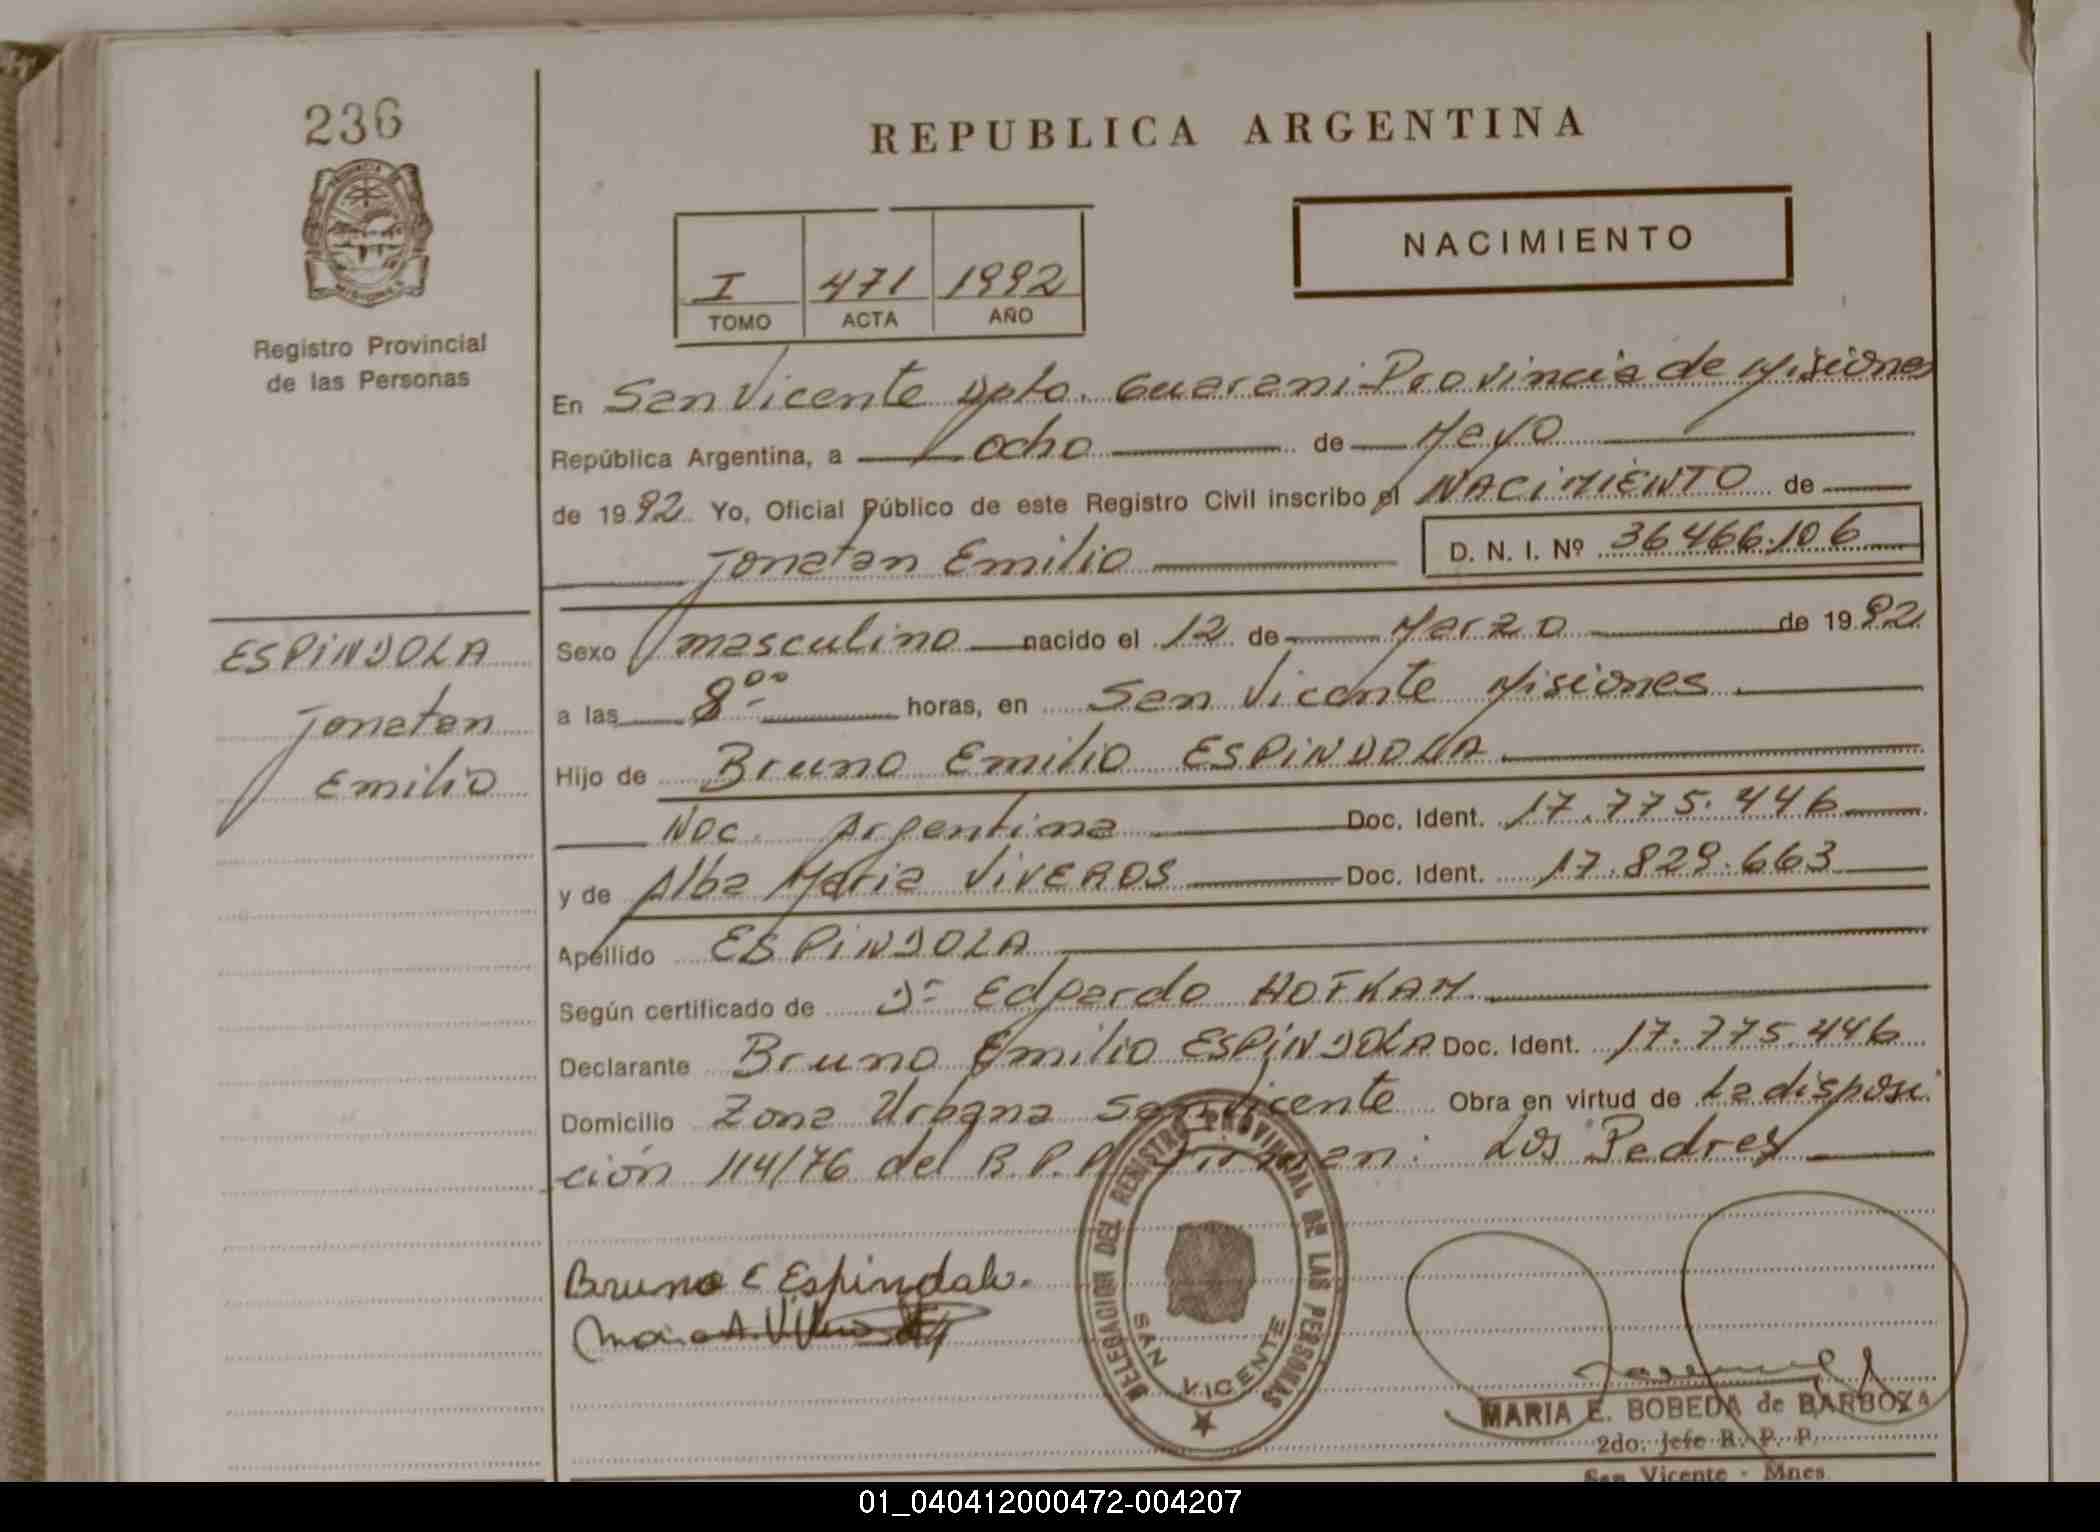 236
REPUBLICA ARGENTINA
NACIMIENTO
I 471 1992
TOMO ACTA AÑO
Registro Provincial
de las Personas
En San Vicente Dpto. Guarani-Provincia de Misiones
República Argentina, a ocho de Mayo
de 1992 Yo, Oficial Público de este Registro Civil inscribo el NACIMIENTO de
Jonatan Emilio D. N. I. Nº 36466.106
ESPINDOLA
Jonatan
Emilio
Sexo masculino nacido el 12 de Marzo de 1992
a las 8ºº horas, en San Vicente Misiones
Hijo de Bruno Emilio ESPINDOLA
Nac. Argentina Doc. Ident. 17.775.446
y de Alba Maria VIVEROS Doc. Ident. 17.829.663
Apellido ESPINDOLA
Según certificado de Dr Edgardo HOFKAM
Declarante Bruno Emilio ESPINDOLA Doc. Ident. 17.775.446
Domicilio Zona Urbana San Vicente Obra en virtud de La disposi
ción 114/76 del R.P.P. Firman: Los Padres
Bruno E Espindola.
Maria A. Viveros
DELEGACION DEL REGISTRO PROVINCIAL DE LAS PERSONAS
SAN VICENTE
MARIA E. BOBEDA de BARBOZA
2do. Jefe R. P. P.
San Vicente - Mnes.
01_040412000472-004207